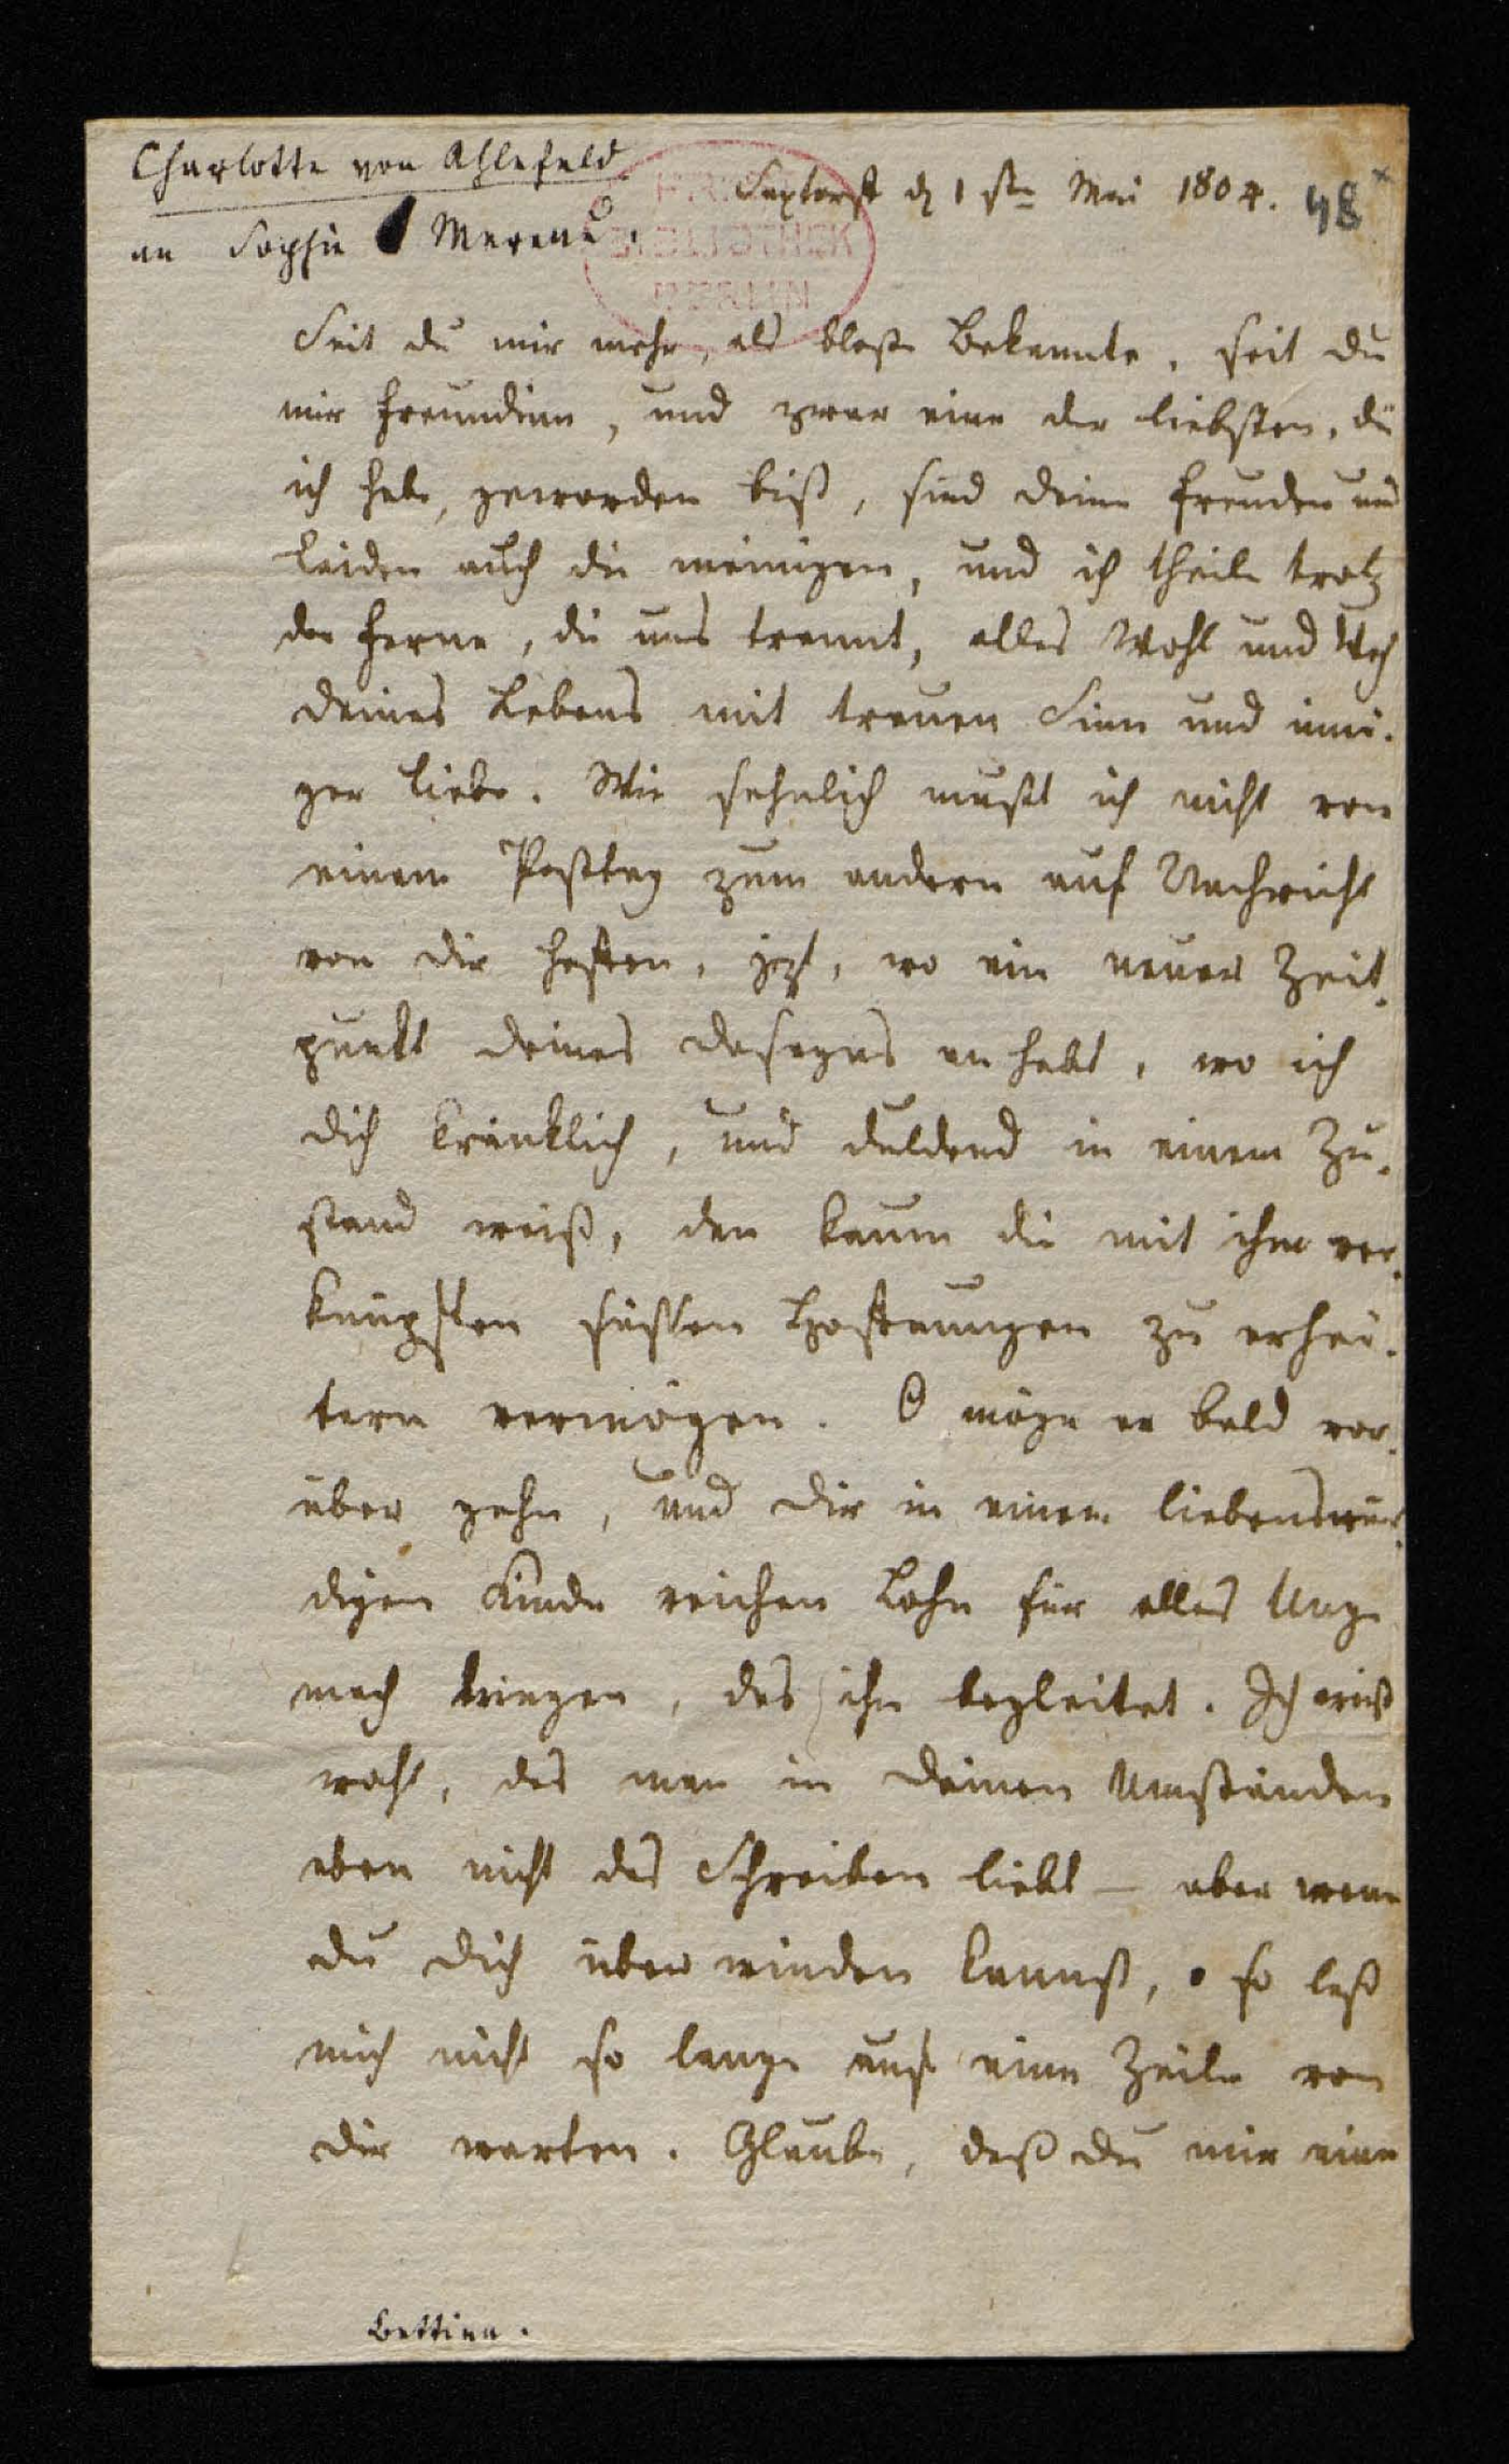 Charlotte von Ahlefeld
an Sophie Mereau.
Saxtorff d 1 ste Mai 1804.
48
BIBLIOTHEK
BERLIN
Seit du mir mehr, als bloße Bekannte, seit du
mir Freundinn, und zwar eine der liebsten, die
ich habe, geworden bist, sind deine Freuden und
Leiden auch die meinigen, und ich theile trotz
der Ferne, die uns trennt, alles Wohl und Weh
deines Lebens mit treuen Sinn und inni-
ger Liebe. Wie sehnlich mußt ich nicht von
einem Posttag zum andern auf Nachricht
von dir hoffen, jezt, wo ein neuer Zeit-
punkt deines Daseyns anhebt, wo ich
dich kränklich, und duldend in einem Zu-
stand weiß, den kaum die mit ihm ver-
knüpften süssen Hoffnungen zu erhei-
tern vermögen. O möge er bald vor-
über gehn, und dir in einem liebenswür-
digen Kinde reichen Lohn für alles Unge
mach bringen, das ihn begleitet. Ich weiß
wohl, das man in deinen Umständen
eben nicht das Schreiben liebt – aber wenn
du dich überwinden kannst, so laß
mich nicht so lange auf eine Zeile von
dir warten. Glaube, daß du mir eine
Bettina.